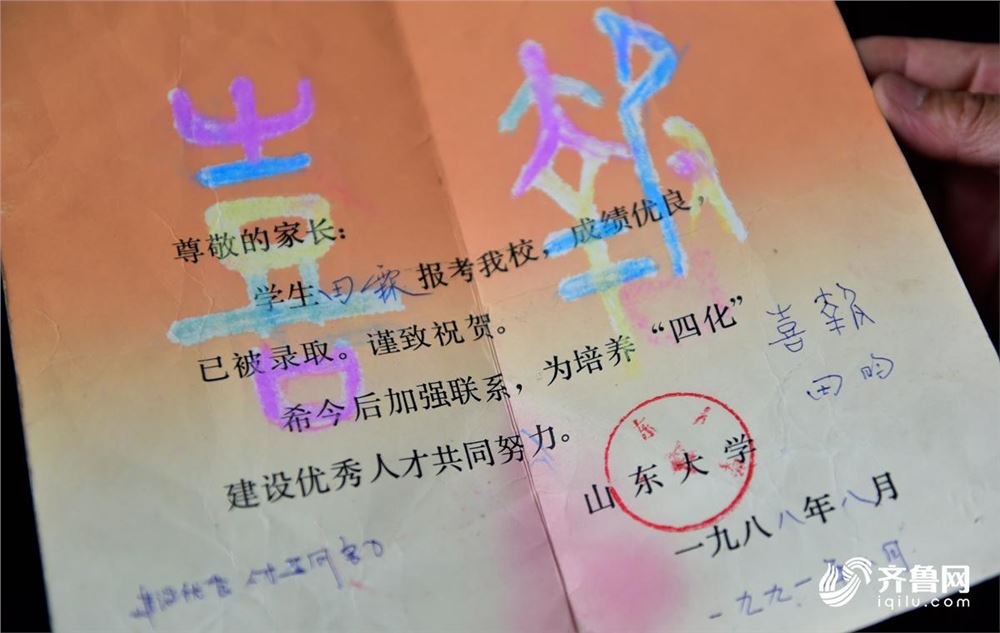 喜報
尊敬的家长：
学生田霖报考我校，成绩优良，
已被录取。谨致祝贺。
希今后加强联系，为培养“四化”
建设优秀人才共同努力。
喜報
田昀
山东大学
一九八八年八月
一九九一
齐鲁网
iqilu.com